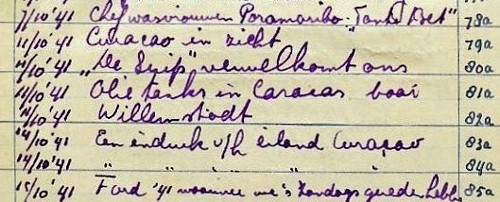 7/10 '41 Chef wasvrouwen Paramaribo: "Tante Bet" 78a
11/10 '41 Curaçao in zicht 79a
11/10 '41 "De Sijp" verwelkomt ons 80a
11/10 '41 Olie tanks in Caracas baai 81a
11/10 '41 Willemstadt 82a
14/10 '41 Een indruk v/h eiland Curaçao 83a
14/10 '41 " " " " 84a
15/10 '41 Ford '41 waarmee we 's Zondags gereden hebben 85a